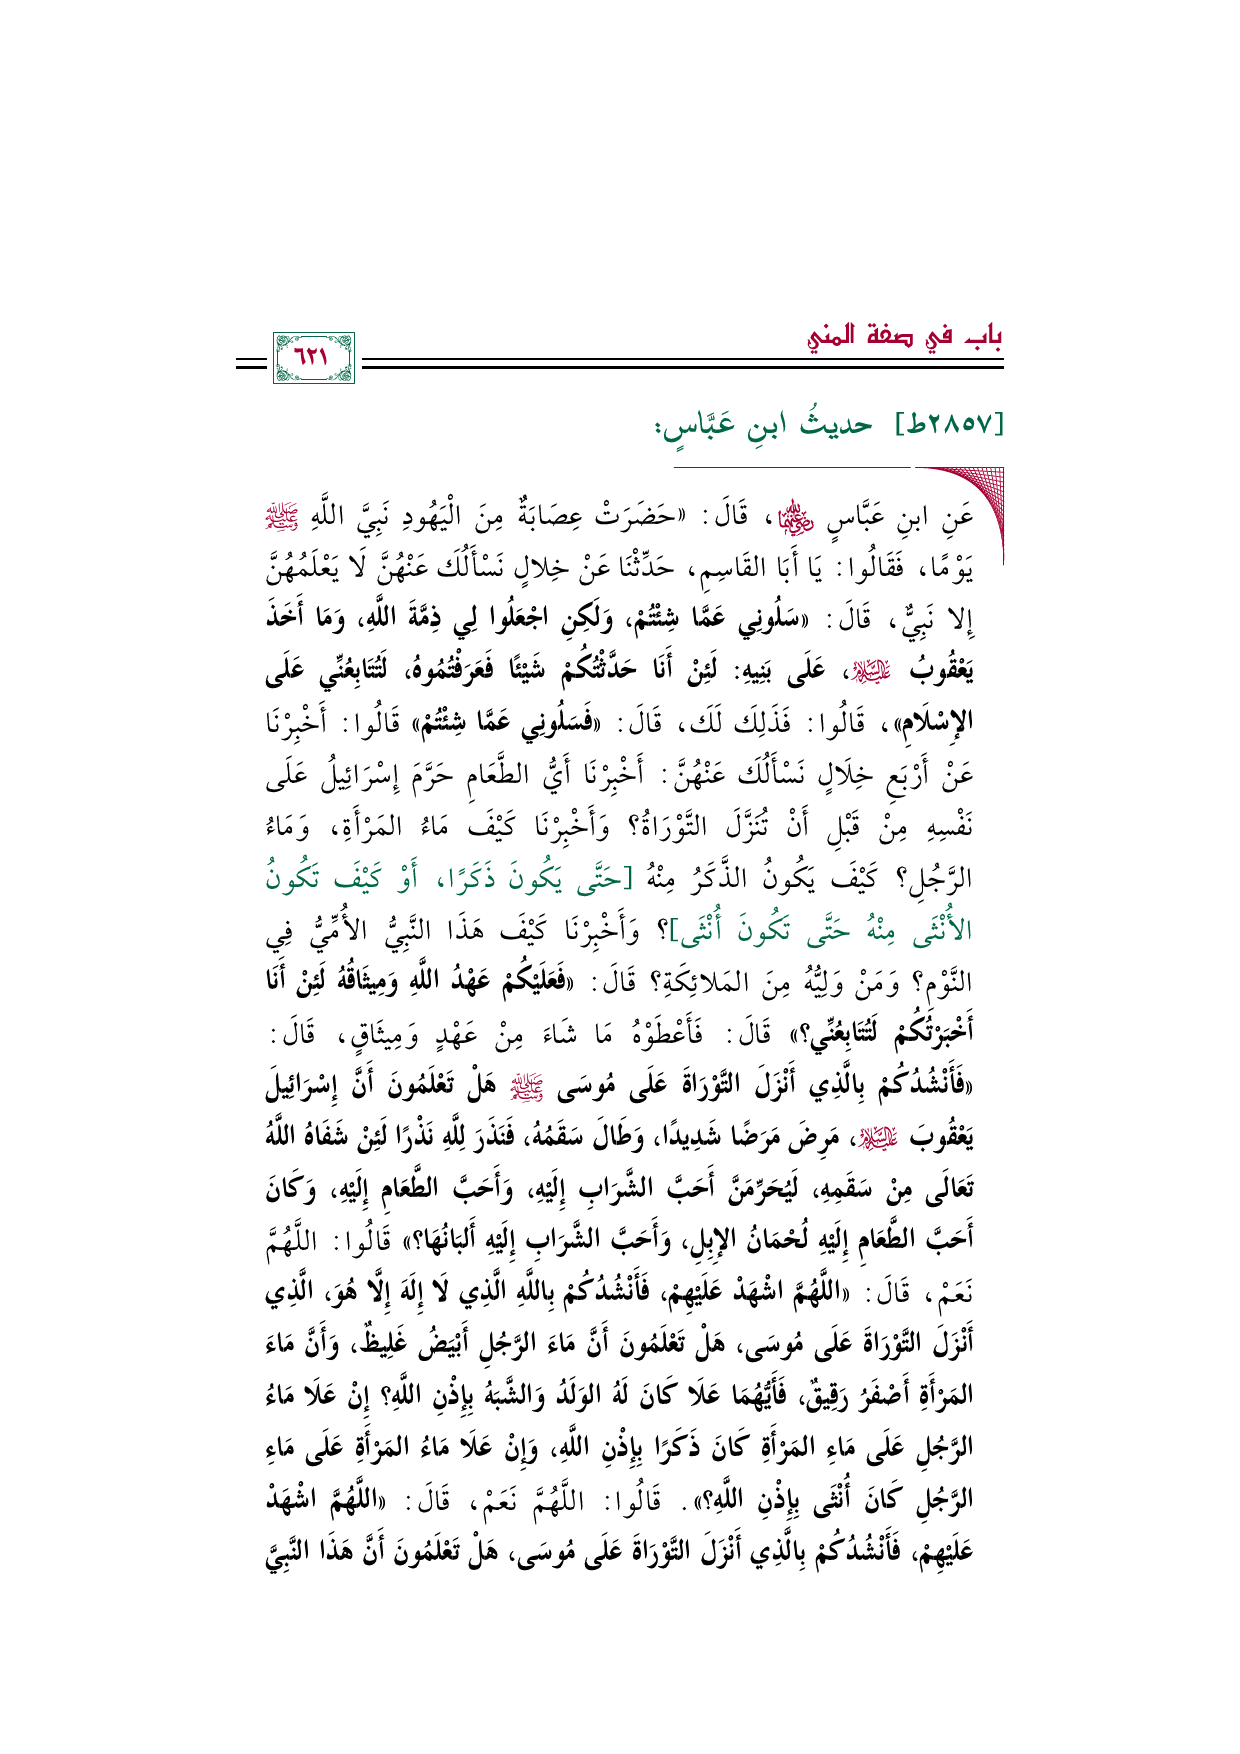 باب في صفة المني
٦٢١
[٢٨٥٧ط] حديثُ ابنِ عَبَّاسٍ:
عَنِ ابنِ عَبَّاسٍ ﵄، قَالَ: «حَضَرَتْ عِصَابَةٌ مِنَ الْيَهُودِ نَبِيَّ اللَّهِ ﷺ
يَوْمًا، فَقَالُوا: يَا أَبَا القَاسِمِ، حَدِّثْنَا عَنْ خِلالٍ نَسْأَلُكَ عَنْهُنَّ لَا يَعْلَمُهُنَّ
إِلا نَبِيٌّ، قَالَ: «سَلُونِي عَمَّا شِئْتُمْ، وَلَكِنِ اجْعَلُوا لِي ذِمَّةَ اللَّهِ، وَمَا أَخَذَ
يَعْقُوبُ ﵇، عَلَى بَنِيهِ: لَئِنْ أَنَا حَدَّثْتُكُمْ شَيْئًا فَعَرَفْتُمُوهُ، لَتُتَابِعُنِّي عَلَى
الإِسْلَامِ»، قَالُوا: فَذَلِكَ لَكَ، قَالَ: «فَسَلُونِي عَمَّا شِئْتُمْ» قَالُوا: أَخْبِرْنَا
عَنْ أَرْبَعِ خِلَالٍ نَسْأَلُكَ عَنْهُنَّ: أَخْبِرْنَا أَيُّ الطَّعَامِ حَرَّمَ إِسْرَائِيلُ عَلَى
نَفْسِهِ مِنْ قَبْلِ أَنْ تُنَزَّلَ التَّوْرَاةُ؟ وَأَخْبِرْنَا كَيْفَ مَاءُ المَرْأَةِ، وَمَاءُ
الرَّجُلِ؟ كَيْفَ يَكُونُ الذَّكَرُ مِنْهُ [حَتَّى يَكُونَ ذَكَرًا، أَوْ كَيْفَ تَكُونُ
الأُنْثَى مِنْهُ حَتَّى تَكُونَ أُنْثَى]؟ وَأَخْبِرْنَا كَيْفَ هَذَا النَّبِيُّ الأُمِّيُّ فِي
النَّوْمِ؟ وَمَنْ وَلِيُّهُ مِنَ المَلائِكَةِ؟ قَالَ: «فَعَلَيْكُمْ عَهْدُ اللَّهِ وَمِيثَاقُهُ لَئِنْ أَنَا
أَخْبَرْتُكُمْ لَتُتَابِعُنِّي؟» قَالَ: فَأَعْطَوْهُ مَا شَاءَ مِنْ عَهْدٍ وَمِيثَاقٍ، قَالَ:
«فَأَنْشُدُكُمْ بِالَّذِي أَنْزَلَ التَّوْرَاةَ عَلَى مُوسَى ﷺ هَلْ تَعْلَمُونَ أَنَّ إِسْرَائِيلَ
يَعْقُوبَ ﵇، مَرِضَ مَرَضًا شَدِيدًا، وَطَالَ سَقَمُهُ، فَنَذَرَ لِلَّهِ نَذْرًا لَئِنْ شَفَاهُ اللَّهُ
تَعَالَى مِنْ سَقَمِهِ، لَيُحَرِّمَنَّ أَحَبَّ الشَّرَابِ إِلَيْهِ، وَأَحَبَّ الطَّعَامِ إِلَيْهِ، وَكَانَ
أَحَبَّ الطَّعَامِ إِلَيْهِ لُحْمَانُ الإِبِلِ، وَأَحَبَّ الشَّرَابِ إِلَيْهِ أَلبَانُهَا؟» قَالُوا: اللَّهُمَّ
نَعَمْ، قَالَ: «اللَّهُمَّ اشْهَدْ عَلَيْهِمْ، فَأَنْشُدُكُمْ بِاللَّهِ الَّذِي لَا إِلَهَ إِلَّا هُوَ، الَّذِي
أَنْزَلَ التَّوْرَاةَ عَلَى مُوسَى، هَلْ تَعْلَمُونَ أَنَّ مَاءَ الرَّجُلِ أَبْيَضُ غَلِيظٌ، وَأَنَّ مَاءَ
المَرْأَةِ أَصْفَرُ رَقِيقٌ، فَأَيُّهُمَا عَلَا كَانَ لَهُ الوَلَدُ وَالشَّبَهُ بِإِذْنِ اللَّهِ؟ إِنْ عَلَا مَاءُ
الرَّجُلِ عَلَى مَاءِ المَرْأَةِ كَانَ ذَكَرًا بِإِذْنِ اللَّهِ، وَإِنْ عَلَا مَاءُ المَرْأَةِ عَلَى مَاءِ
الرَّجُلِ كَانَ أُنْثَى بِإِذْنِ اللَّهِ؟». قَالُوا: اللَّهُمَّ نَعَمْ، قَالَ: «اللَّهُمَّ اشْهَدْ
عَلَيْهِمْ، فَأَنْشُدُكُمْ بِالَّذِي أَنْزَلَ التَّوْرَاةَ عَلَى مُوسَى، هَلْ تَعْلَمُونَ أَنَّ هَذَا النَّبِيَّ